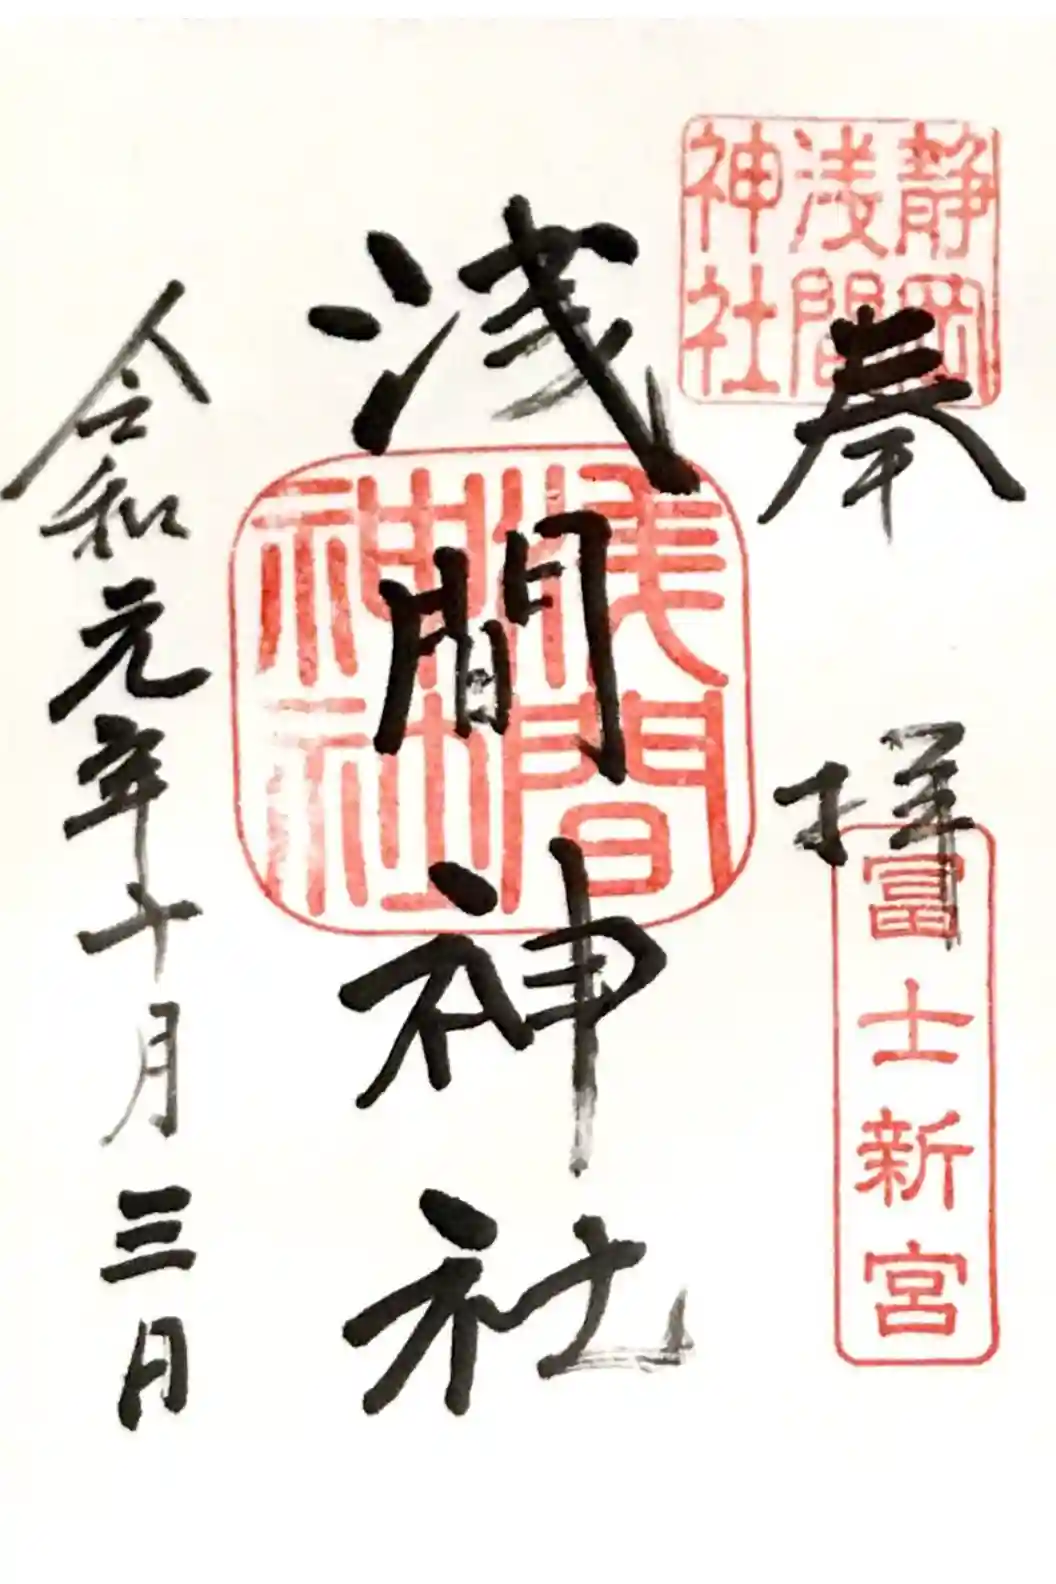 奉拝
静岡
浅間
神社
冨士新宮
浅間神社
浅間
神社
令和元年十月三日